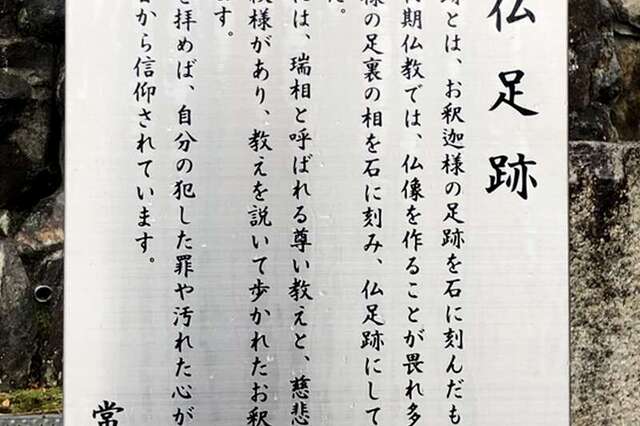 仏足跡
跡とは、お釈迦様の足跡を石に刻んだも
期仏教では、仏像を作ることが畏れ多
様の足裏の相を石に刻み、仏足跡にして
た。
には、瑞相と呼ばれる尊い教えと、慈悲
模様があり、教えを説いて歩かれたお釈
ます。
を拝めば、自分の犯した罪や汚れた心が
から信仰されています。
常